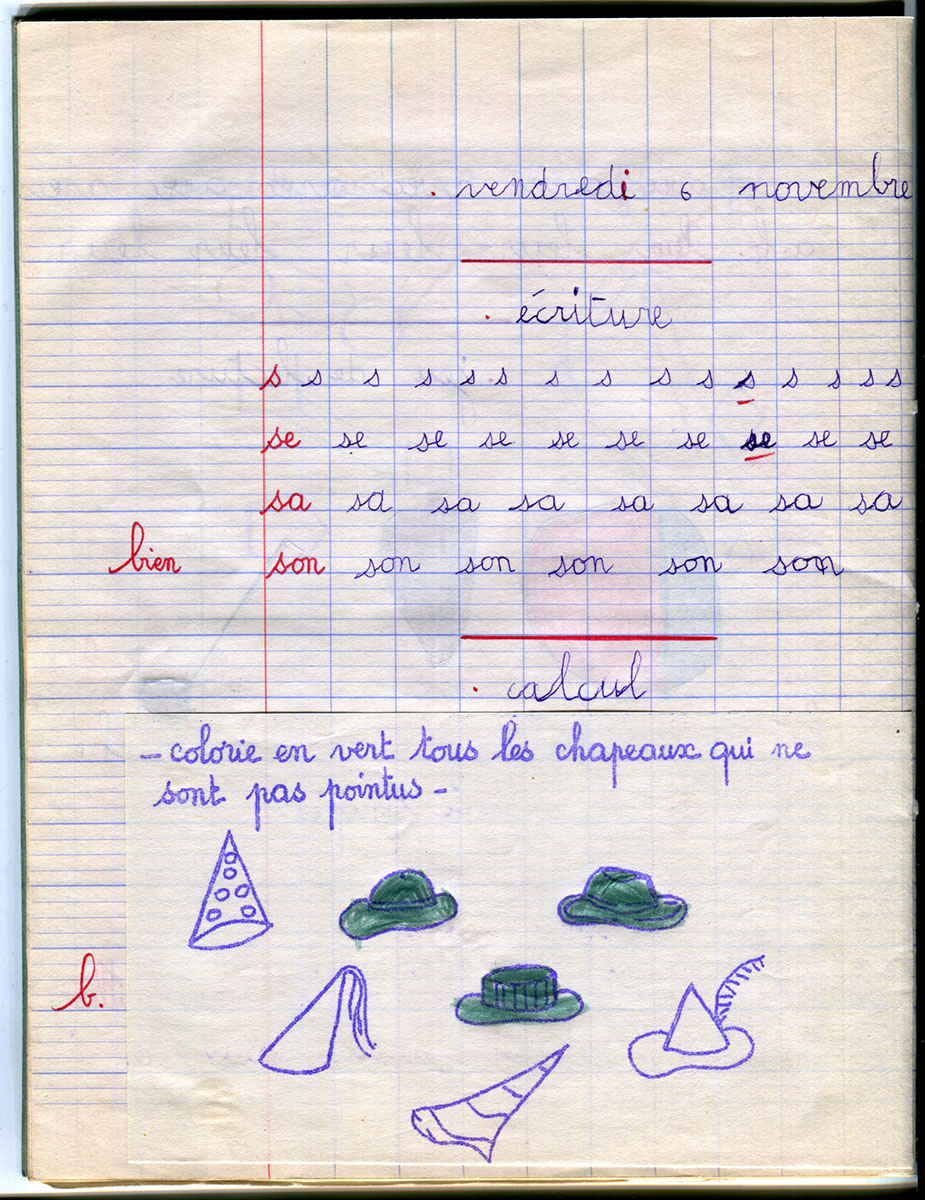 vendredi 6 novembre
écriture
s s s s s s s s s s s s s s s
se se se se se se se se se se
sa sa sa sa sa sa sa sa
bien son son son son son son
calcul
– colorie en vert tous les chapeaux qui ne
sont pas pointus –
b.